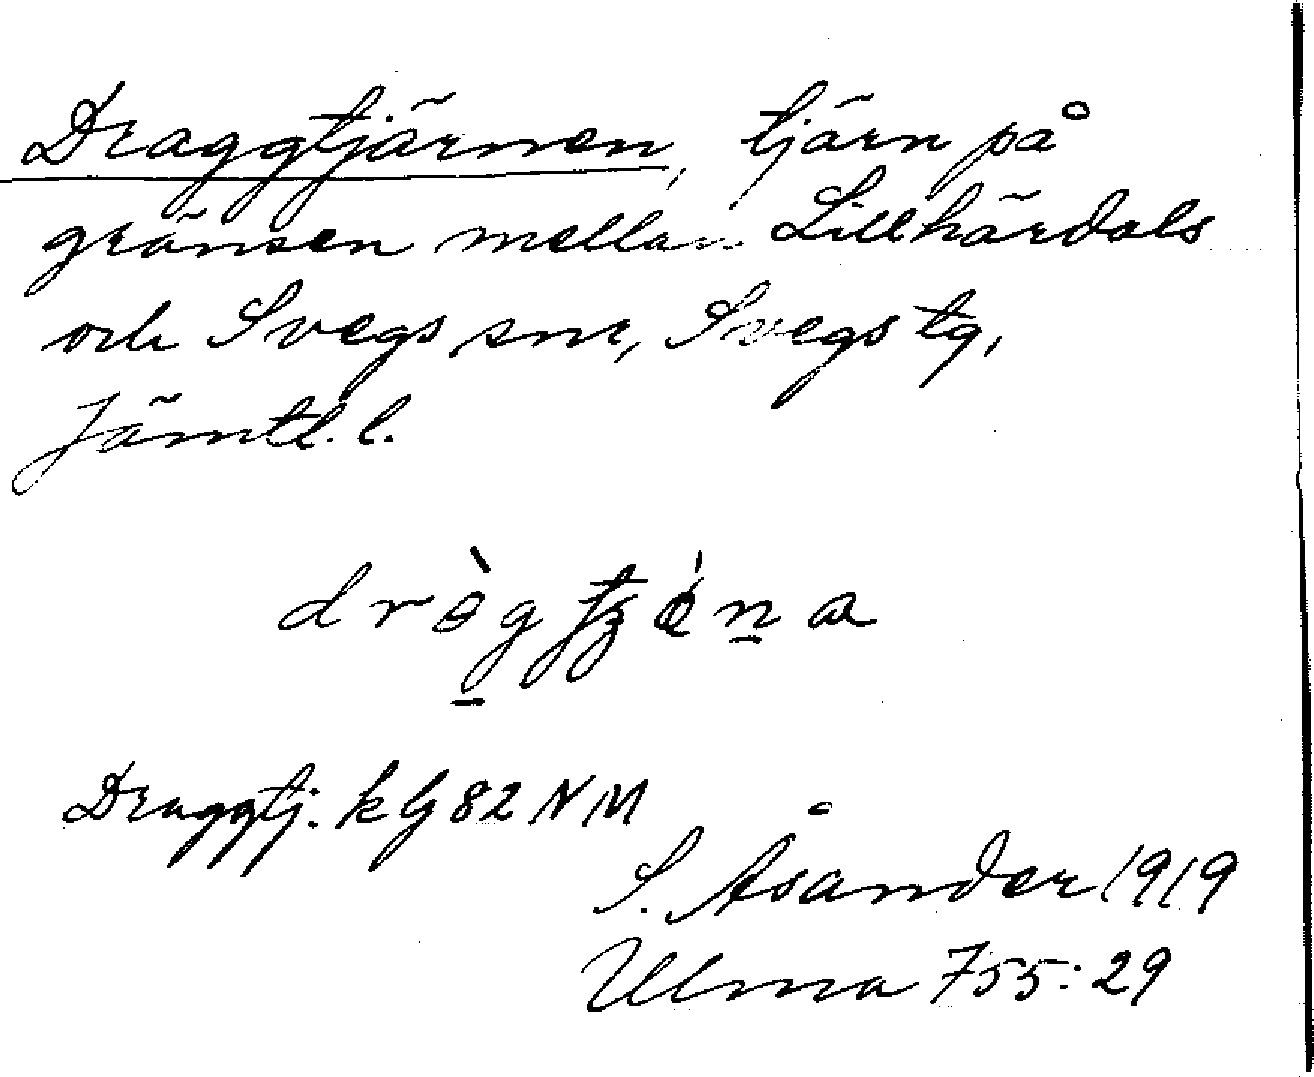 Draggtjärnen, tjärn på
gränsen mellan Lillhärdals
och Svegs snr, Svegs tg,
Jämtl. l.
Draggtj. k G 82 NM
S. Åsander 1919
Ulma 755:29